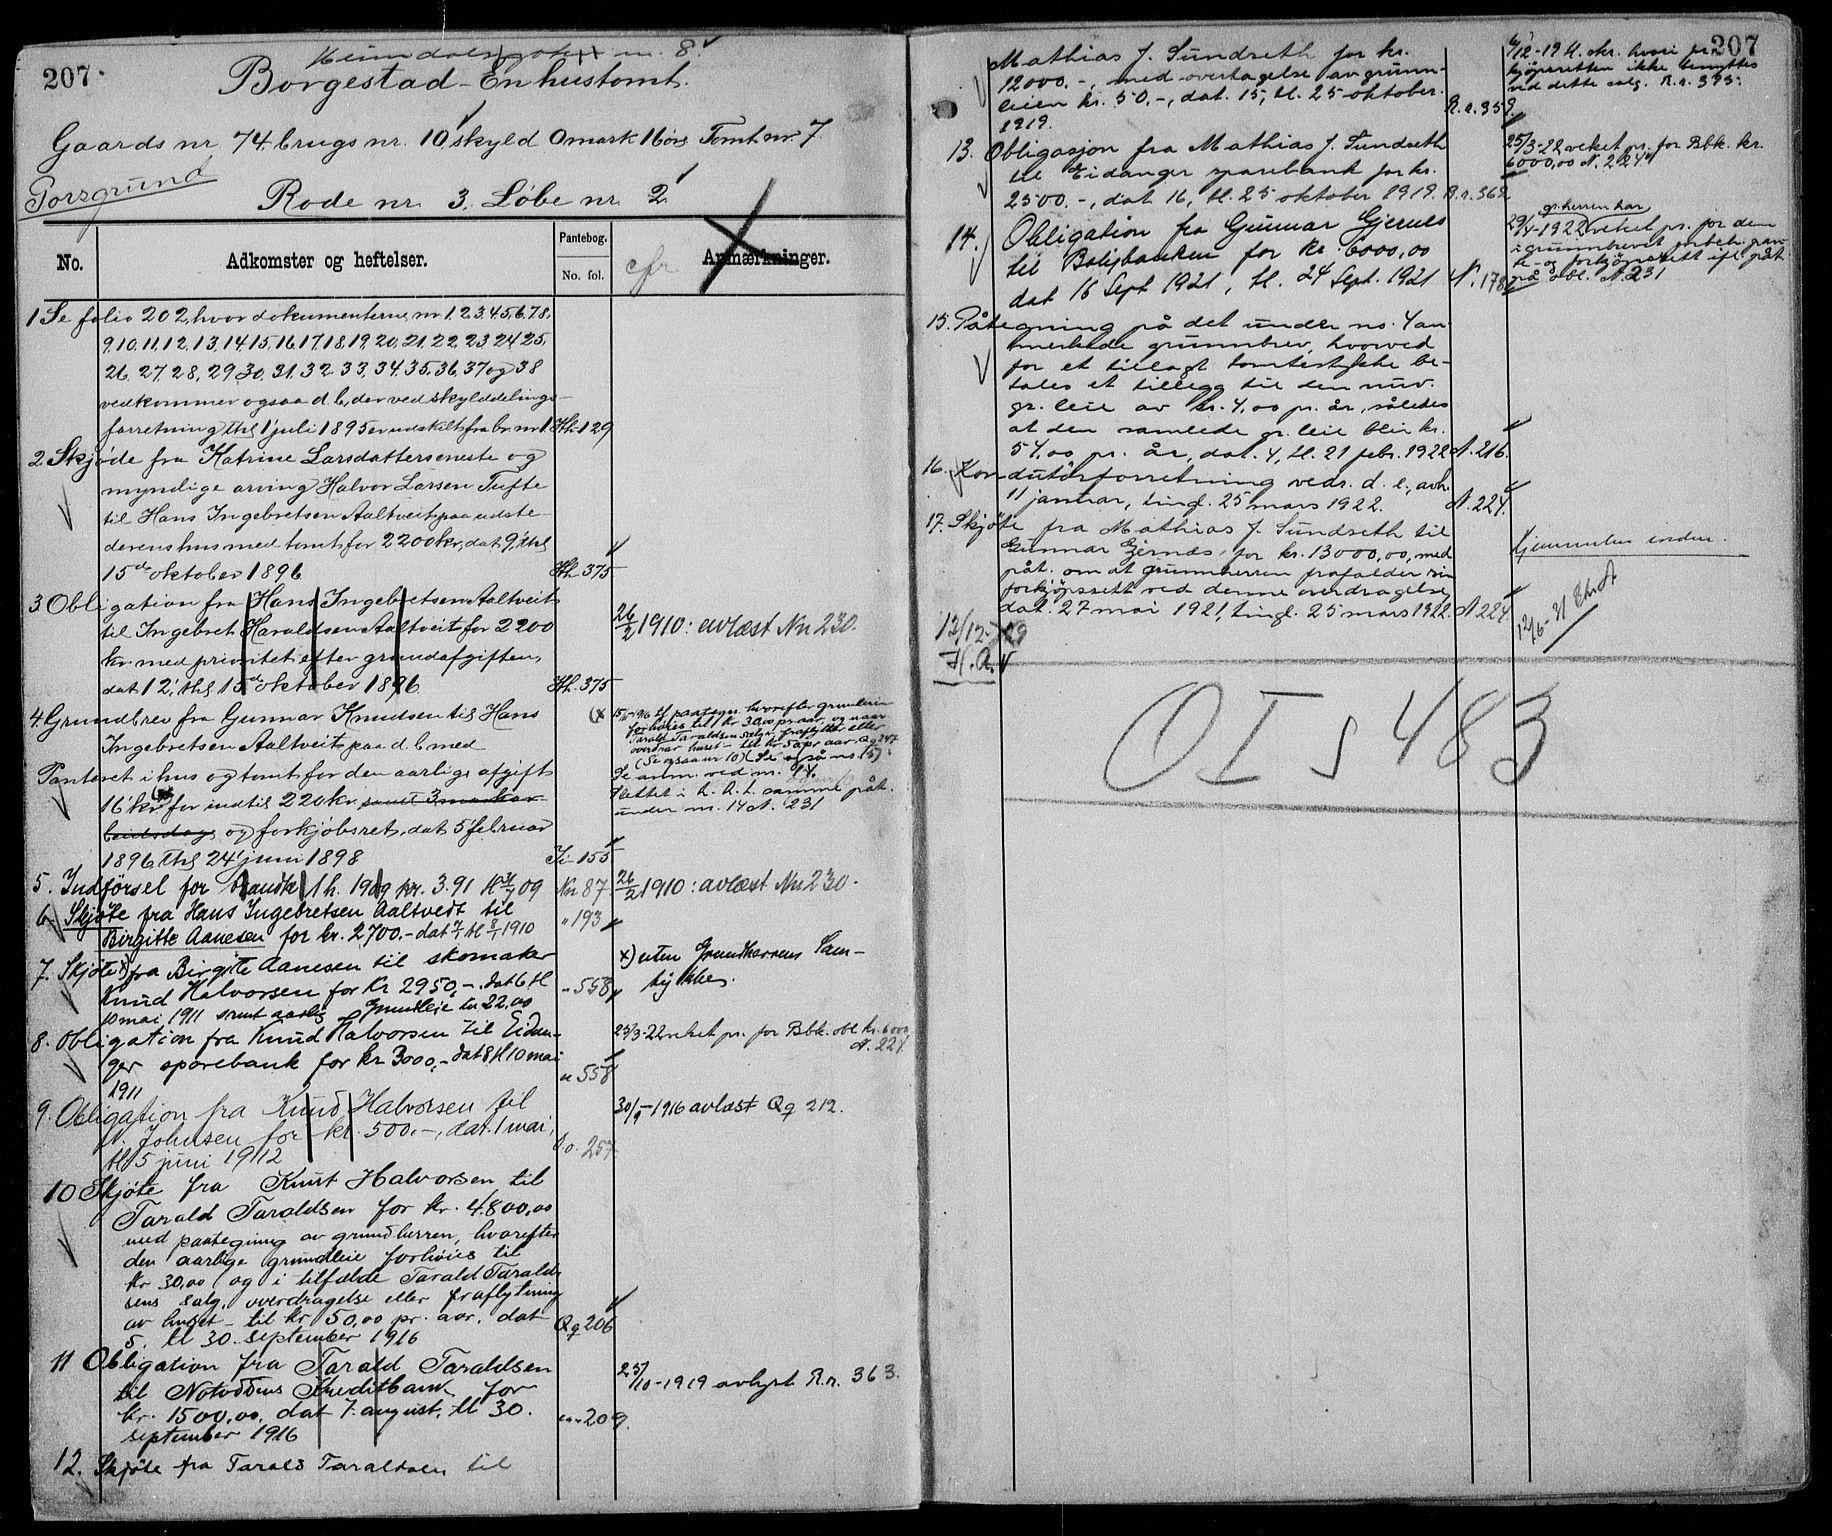 207.
Borgestad - En hustomt.
Gaards nr. 74. brugs nr. 10 skyld 0 mark 16 øre Tomt nr. 7.
Porsgrund
Rode nr. 3. Løbe nr. 2
No.
Adkomster og heftelser.
Pantebog.
No. fol.
cfr
Anmærkninger.
1 Se folio 202, hvor dokumenterne nr 1, 2, 3, 4, 5, 6, 7, 8,
9, 10, 11, 12, 13, 14, 15, 16, 17, 18, 19, 20, 21, 22, 23 24 25,
26, 27, 28, 29 30, 31, 32. 33, 34, 35, 36, 37 og 38
vedkommer ogsaa d. b, der ved skylddelings-
forretning thl 1 juli 1895 er udskilt fra br. nr 1. Hh 129
2. Skjøde fra Katrine Larsdatters eneste og
myndige arving Halvor Larsen Tufte
til Hans Ingebretsen Aaltveit paa udste-
derens hus med tomt for 2200 kr, dat 9, thl
15de oktober 1896 Hh. 375
3. Obligation fra Hans Ingebretsen Aaltveit
til Ingebret Haraldsen Aaltveit for 2200
kr med prioritet efter grundafgiften,
dat 12, thl 15de oktober 1896 Hh. 375
26/2 1910: avlæst Nn 230.
4. Grundbrev fra Gunnar Knudsen til Hans
Ingebretsen Aaltveit paa d. b. med
Panteret i hus og tomt for den aarlige afgift
16 kr, for indtil 220 kr samt 3 mandar-
beidsdage og forkjøbsret, dat 5 februar
1896 thl 24 juni 1898 155
(x 15/11-1916 tl paategn. hvorefter grundleien
forhøies til kr 30,00 pr aar, og naar
Tarald Taraldsen sælger, fraflytter eller
overdrar huset - til kr 50 pr aar. Qq 247
(Se ogsaa nr 10) (Se også no. 15).
Se anm. ved nr. 14.
Slettet i samme påt.
under nr. 14 N. 231
5. Indførsel for 1909 kr. 3.91 09 Nn 87
26/2 1910: avlæst Nn 230.
6. Skjøte fra Hans Ingebretsen Aaltvedt til
Birgitte Aanesen for kr. 2700.- dat 7/1 tl 8/1 1910 " 193
7. Skjøte x) fra Birgitte Aanesen til skomaker
Knud Halvorsen for kr 2950.- dat 6 tl
10 mai 1911 samt aarlig Grundleie kr 22,00 - 558
x) uten Grundherrens Sam-
tykke.
8. Obligation fra Knud Halvorsen til Eidan-
ger sparebank for kr 3000.- dat 8 tl 10 mai
1911 " 558
25/3-22 veket pr. for Bbk. obl. kr. 6000
N. 224
9. Obligation fra Knud Halvorsen til
N. Johnsen for kr. 500.-, dat. 1 mai,
tl 5 juni 1912 Oo. 257.
30/9-1916 avlæst Qq 212.
10 Skjøte fra Knut Halvorsen til
Tarald Taraldsen for kr. 4800,00
med paategning av grundherren, hvorefter
den aarlige grundleie forhøies til
kr 30,00 (og i tilfælde Tarald Tarald-
sens salg, overdragelse eller fraflytning
av huset - til kr 50,00 pr. aar. dat
5. tl 30. september 1916 Qq 206
11 Obligation fra Tarald Taraldsen
til Notoddens Kreditbank for
kr. 1500,00. dat 7. august, tl 30.
september 1916 209.
25/10-1919 avlyst R.r. 363.
12. Skjøte fra Tarald Taraldsen til
207
Mathias J. Sundseth for kr.
12000.-, med overtagelse av grunn-
leien kr. 50.-, dat. 15, tl. 25 oktober
1919. R.r. 359.
kjøperetten ikke benyttes
ved dette salg. R.r. 395.
13. Obligasjon fra Mathias J. Sundseth
til Eidanger sparebank for kr.
2500.-, dat 16, tl. 25 oktober 1919. R.r. 362
25/3-22 veket pr. for Bbk. kr.
6000,00 N. 224
14. Obligation fra Gunnar Gjernes
til Boligbanken for kr 6000,00
dat 16 Sept 1921, tl. 24 Sept. 1921 N. 178
gr.herren har
29/4-1922 veket pr. for den
i grunnbrevet
og forkjøpsrett ifl. påt.
på obl. N. 231
15. Påtegning på det under no. 4 an-
merkede grunnbrev, hvorved
for et tillagt tomtestykke be-
tales et tillegg til den nuv.
gr. leie av kr. 4,00 pr. år, således
at den samlede gr. leie blir kr.
54,00 pr. år, dat. 4, tl. 21 febr. 1922 N. 216.
16. Konduktørforretning vedr. d. e., avh.
11 januar, tingl. 25 mars 1922. N. 224.
17. Skjøte fra Mathias J. Sundseth til
Gunnar Gjernes, for kr. 13000,00, med
påt. om at grunnherren frafalder sin
forkjøpsrett ved denne overdragelse,
dat. 27 mai 1921, tingl. 25 mars 1922. N. 224.
Hjemmelen enden.
12/12-29
H. A.
O I s 483